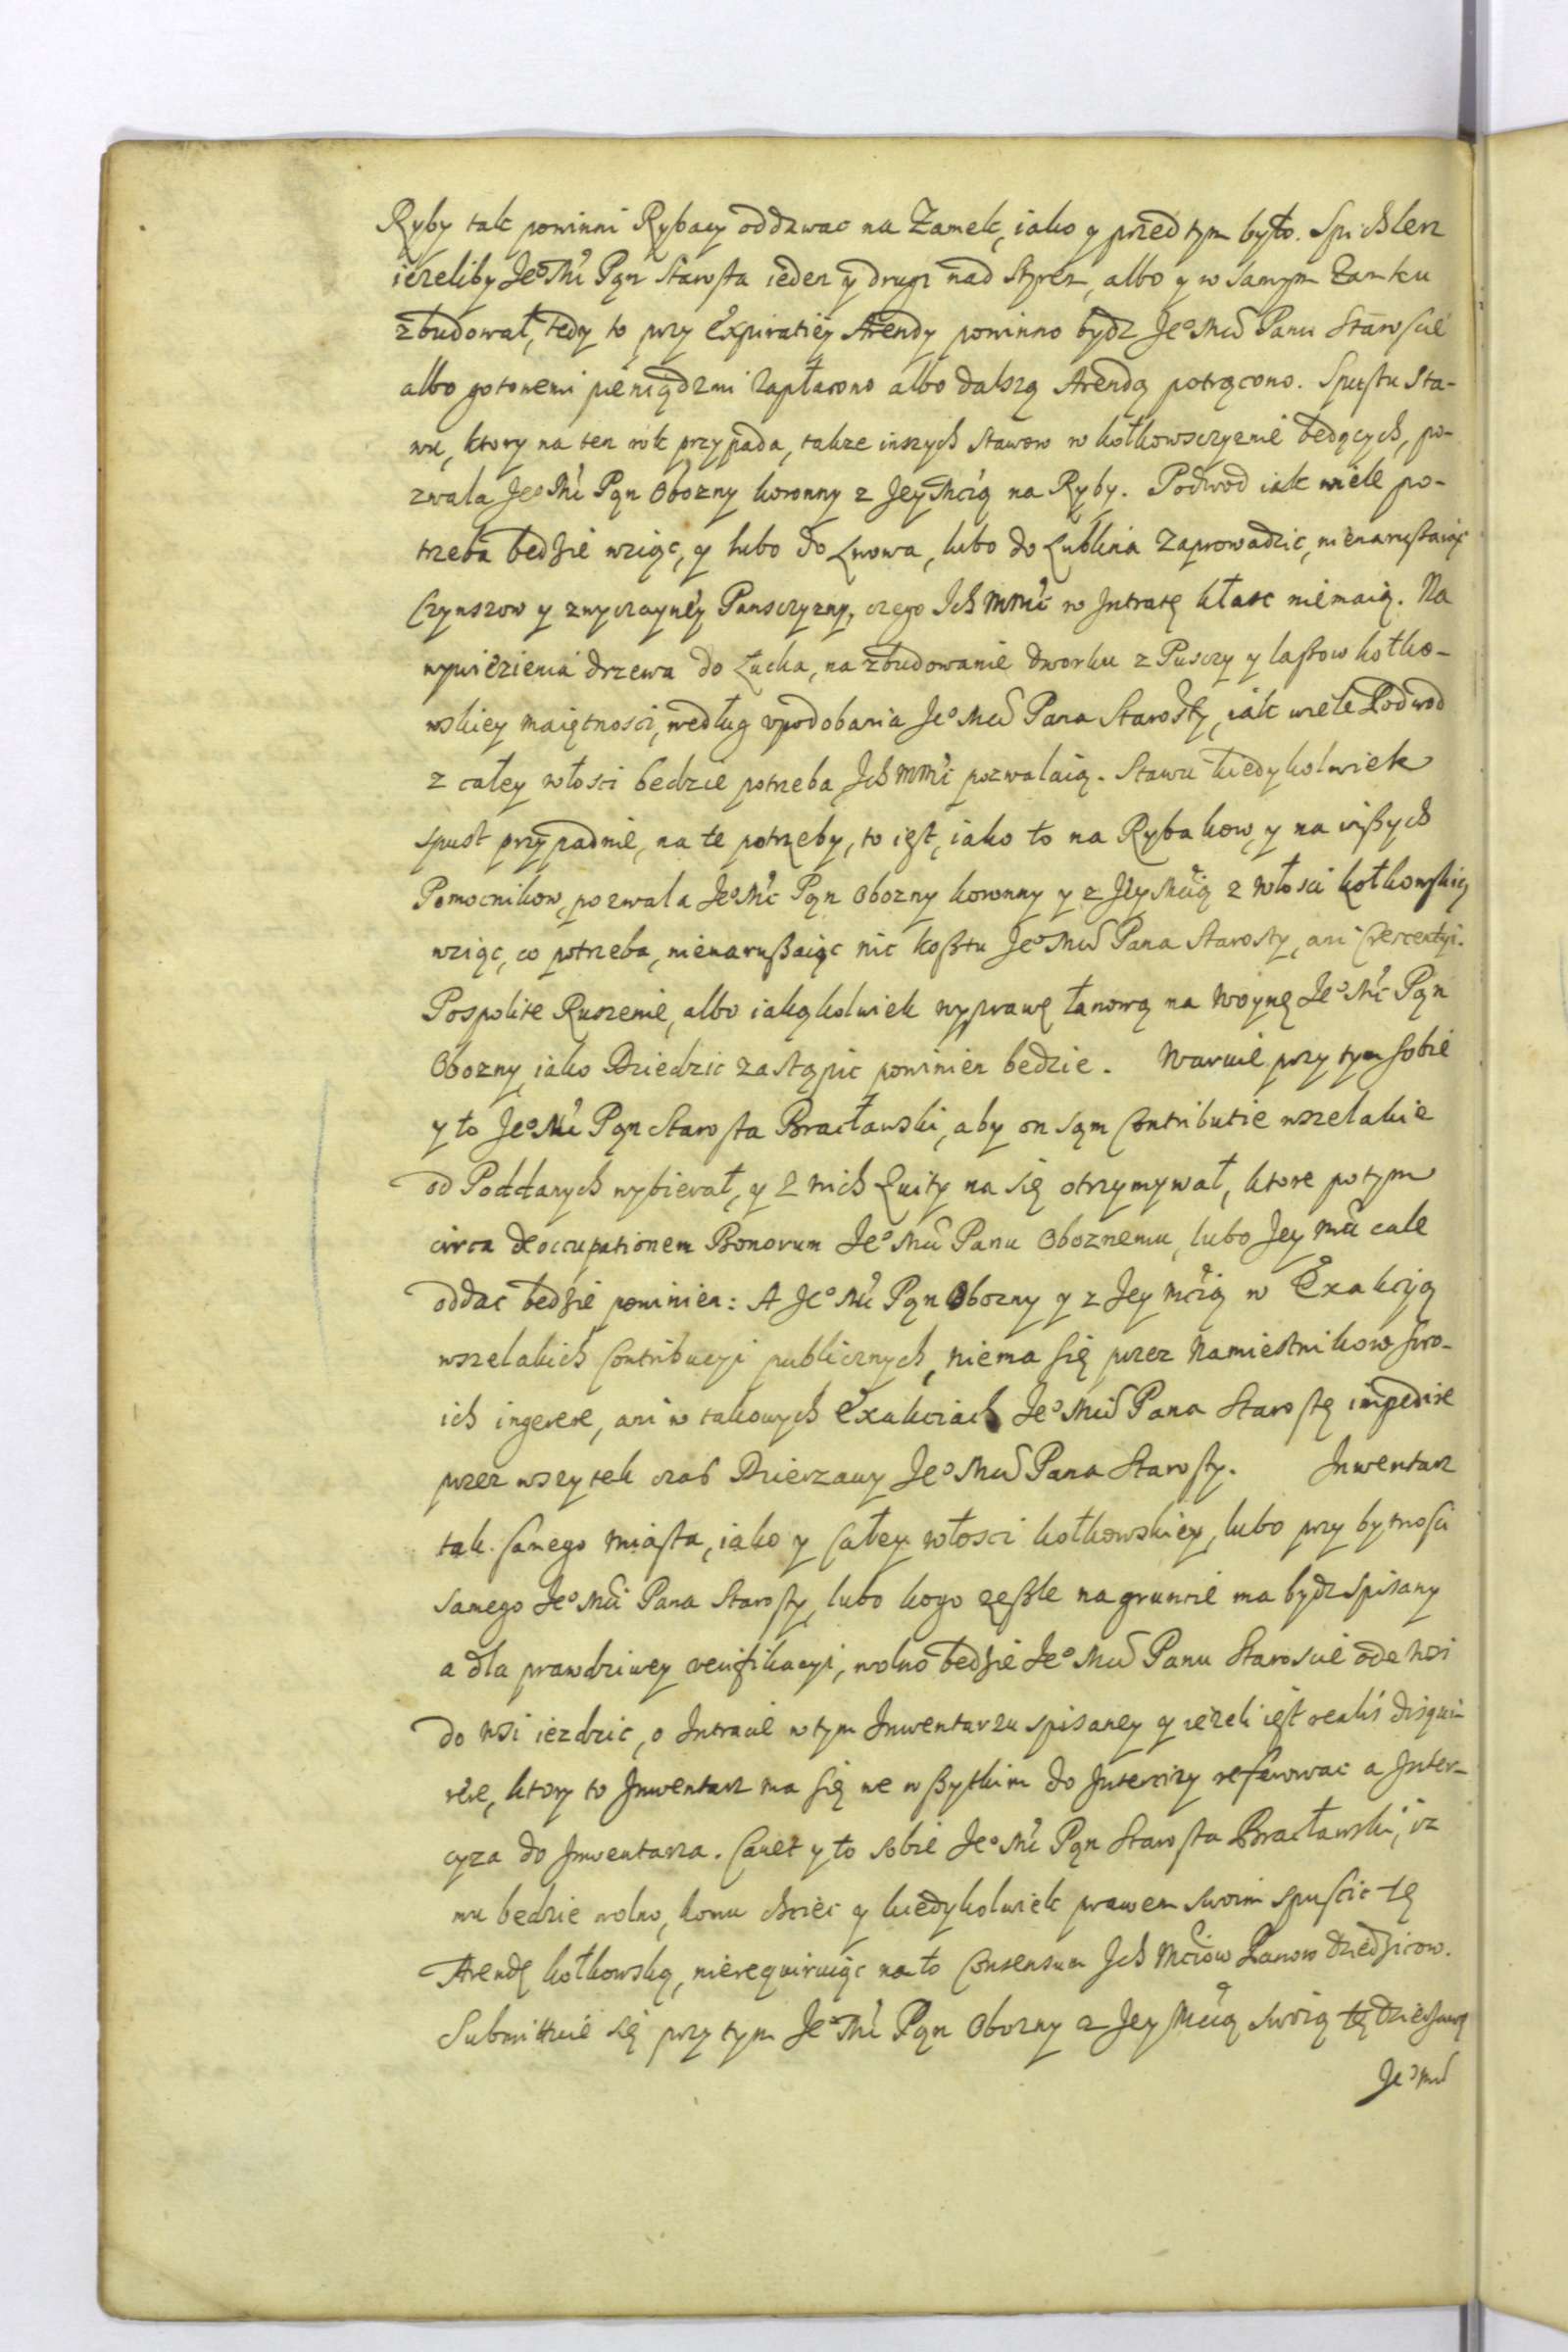 Ryby tak powinni Rybacy oddawac na Zamek, iako y przed tym było. Spichlerz
ieżeliby Jeo Mć Pąn Starosta ieden y drugi nad Styrem, albo y w samym Zamku
zbudował, tedy to przy Expiratiey Arendy powinno bydz Jeo Mci Panu Staroscie
albo gotowemi pieniądzmi zapłacono albo dalszą Arendą potrącono. Spustu Sta-
wu, ktory na ten rok przypada, także inszych stawow w kołkowszczyznie będących, po-
zwala Jeo Mć Pąn Obozny koronny z Jey Mcią na Ryby. Podwod iak wiele po-
trzeba będzie wziąc, y lubo do Lwowa, lubo do Lublina zaprowadzic, nienarußaiąc
Czynszow y zwyczayney Panszczyzny, czego Ich MMć w Intratę kłasc niemaią. Na
wywiezienia drzewa do Łucka, na zbudowanie dworku z Pusczy y lassow kołko-
wskiey maiętnosci, według upodobania Jeo Mci Pana Starosty, iak wiele Podwod
z całey włosci będzie potrzeba Ich MMć pozwalaią. Stawu kiedykolwiek
spust przypadnie, na te potrzeby, to iest, iako to na Rybakow, y na inßych
Pomocnikow, pozwala Jeo Mć Pąn Obozny koronny y z Jey Mcią z włosci kołkowskiey
wziąc, co potrzeba, nienarußaiąc nic koßtu Jeo Mci Pana Starosty, ani Crescentyi.
Pospolite Ruszenie, albo iakąkolwiek wyprawę łanową na woynę Jeo Mć Pąn
Obozny iako Dziedzic zastąpic powinien będzie. Waruie przy tym sobie
y to Jeo Mć Pąn Starosta Bracławski, aby on sąm Contributie wszelakie
od Poddanych wybierał, y z nich Quity na się otrzymywał, ktore potym
circa deoccupationem Bonorum Jeo Mci Panu Oboznemu, lubo Jey Mci cale
oddac będzie powinien: A Jeo Mć Pąn Obozny y z Jey Mcią w Exakcyą
wszelakich Contribucyi publicznych, niema się przez Namiestnikow swo-
ich ingerere, ani w takowych Exakciach Jeo Mci Pana Starostę impedire
przez wszytek czas Dzierzawy Jeo Mci Pana Starosty. Inwentarz
tak samego miasta, iako y całey włosci kołkowskiey, lubo przy bytnosci
samego Jeo Mci Pana Starosty, lubo kogo ześle na gruncie ma bydz spisany
a dla prawdziwey verifikacyi, wolno będzie Jeo Mci Panu Staroscie ode wsi
do wsi iezdzic, o Intracie w tym Inwentarzu spisaney y ieżeli iest realis disqui-
rere, ktory to Inwentarz ma się we wßytkim do Intercizy referowac a Inter-
cyza do Inwentarza. Cavet y to sobie Jeo Mć Pąn Starosta Bracławski, iz
mu będzie wolno, komu chciec y kiedykolwiek prawem swoim spuscic tę
Arendę kołkowską, nierequiruiąc na to Consensum Ich Mciow Panow dziedzicow.
Submittuie się przy tym Jeo Mć Pąn Obozny z Jey Mcią swoią tę dzierżawę
Jeo Mci